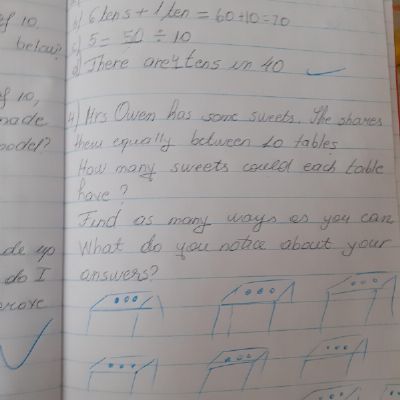 of 10
below?
of 10,
made
model?
de up
do I
prove
b) 6 tens + 1 ten = 60+10=70
c) 5 = 50 ÷ 10
d) There are 4 tens in 40
4) Mrs Owen has some sweets. She shares
them equally between 10 tables
How many sweets could each table
have?
Find as many ways as you can
What do you notice about your
answers?